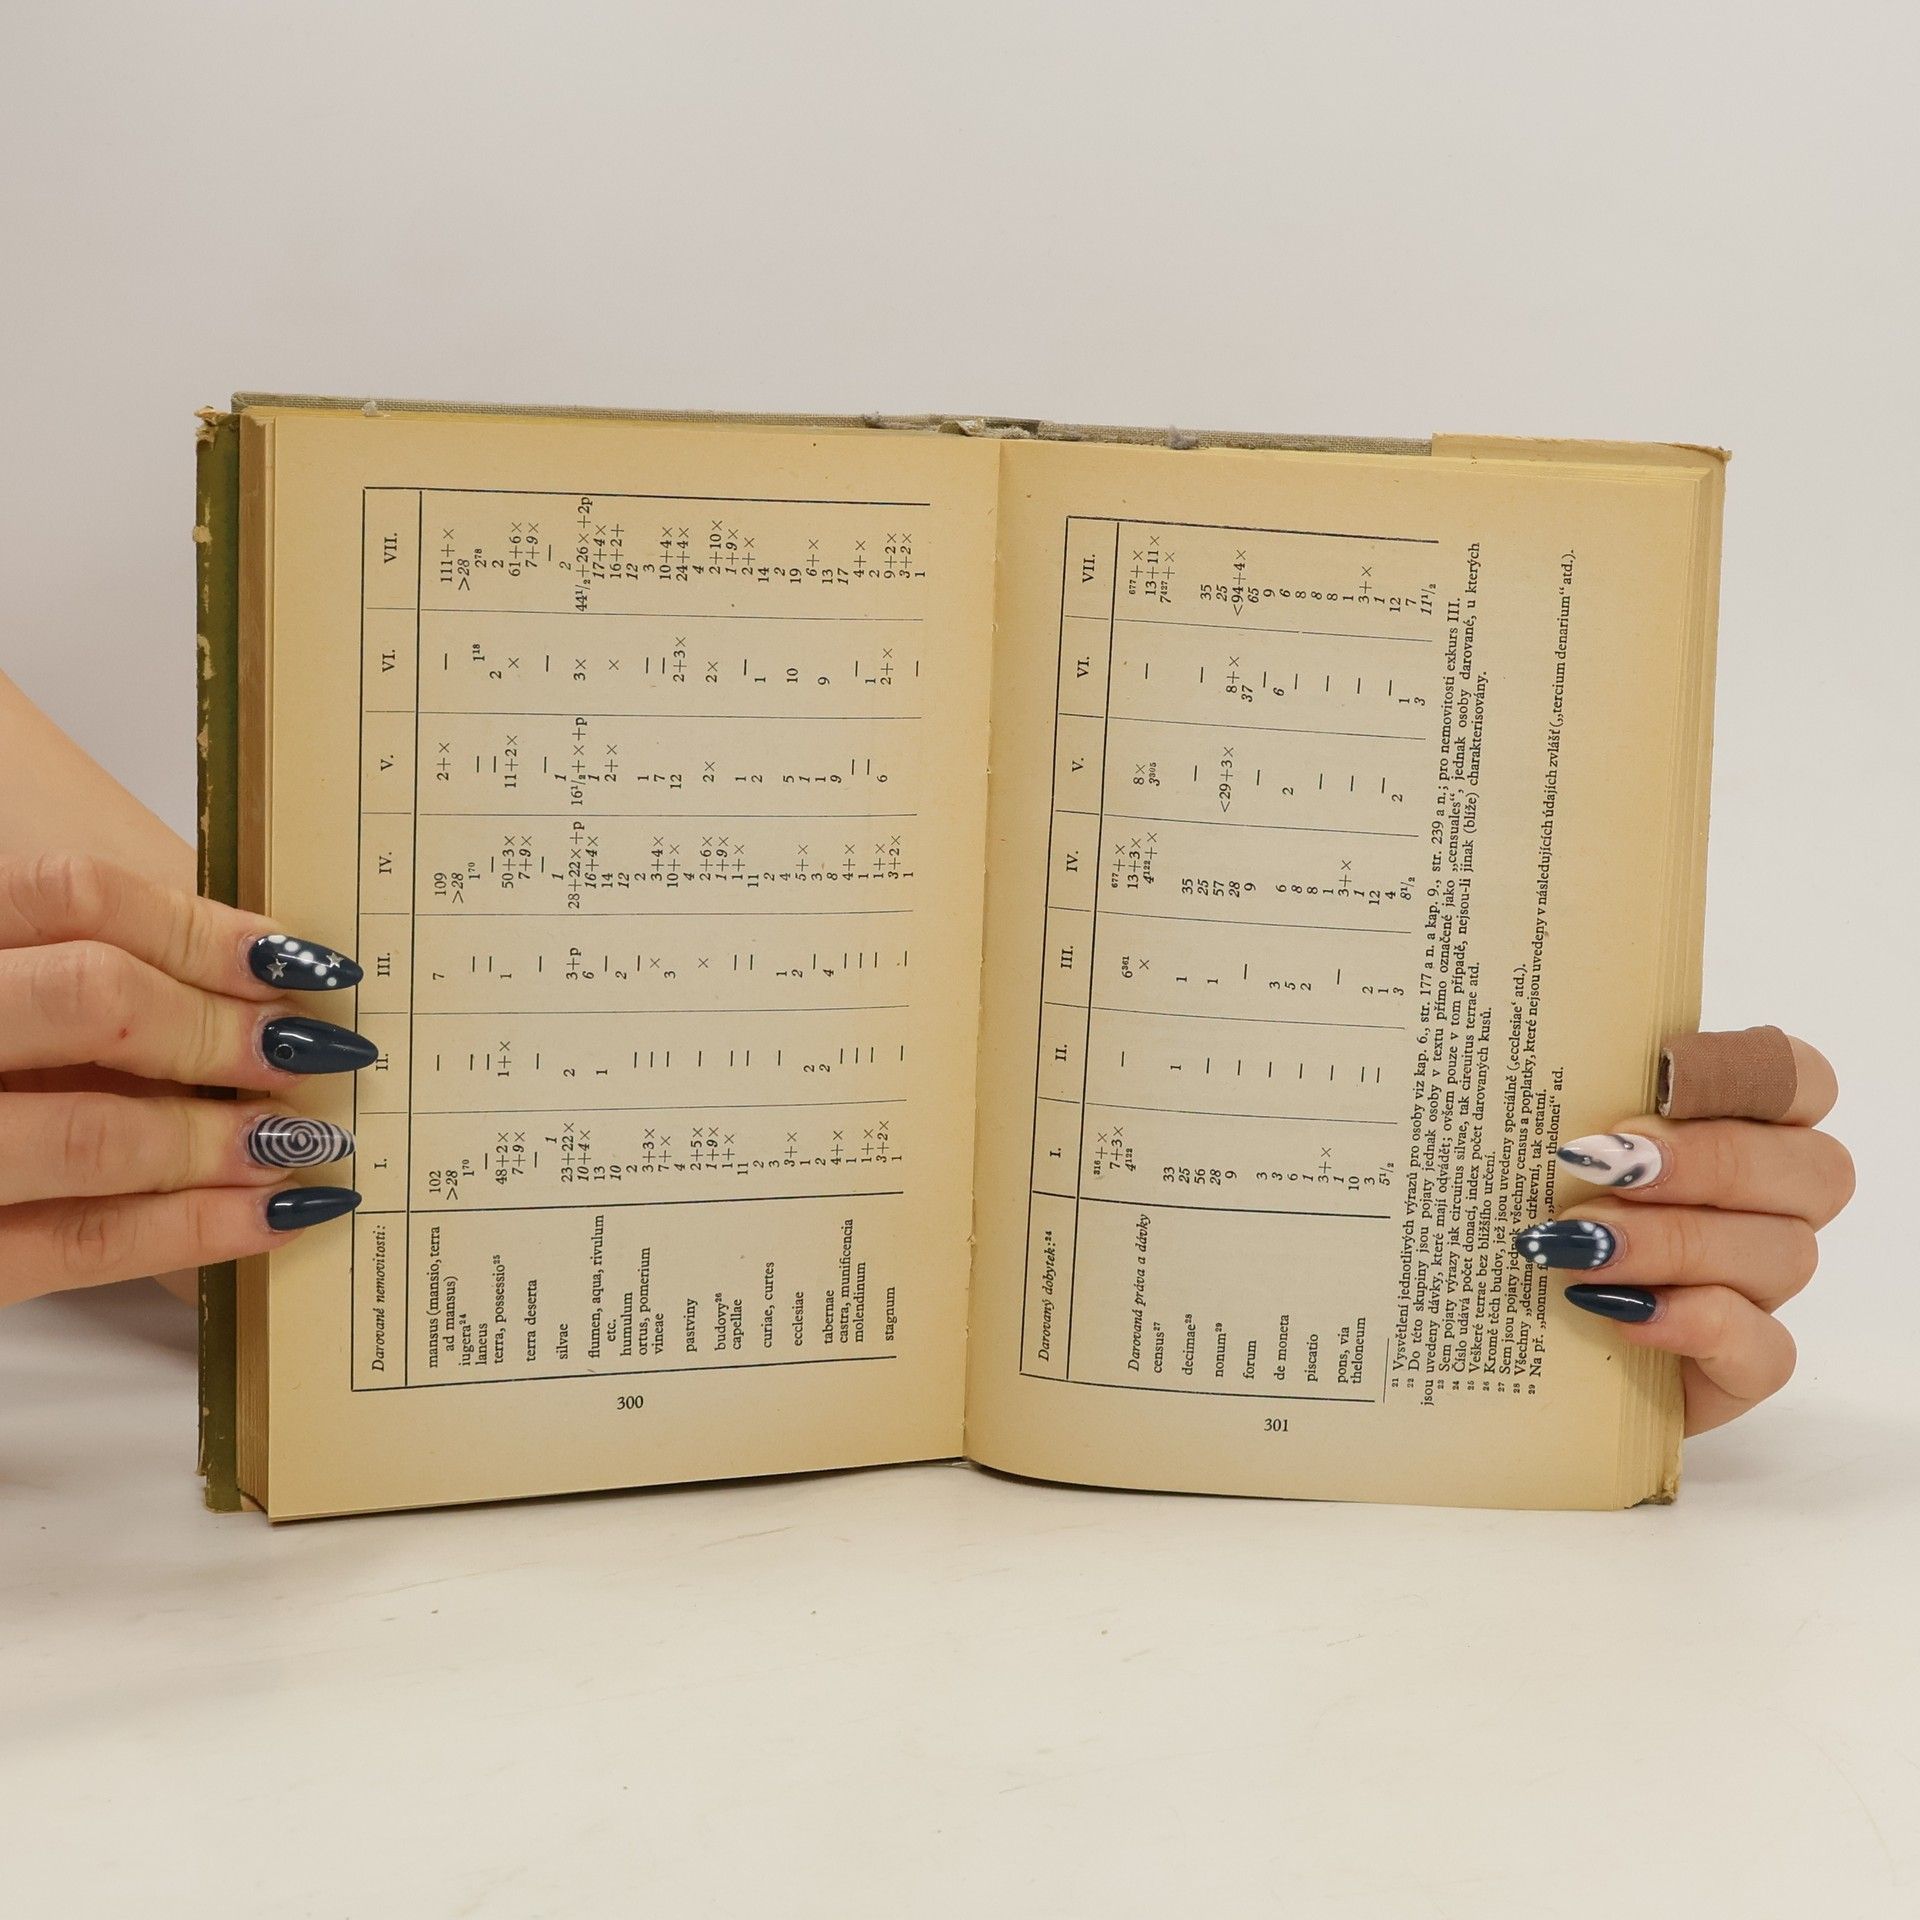 Darované nemovitosti: I. II. III. IV. V. VI. VII.
mansus (mansio, terra 102 — 7 109 2+× — 111+×
ad mansus) >28 >28 >28
iugera²⁴ 1⁷⁰ — — 1⁷⁰ — 1¹⁸ 2⁷⁸
laneus — — — — — 2 2
terra, possessio²⁵ 48+2× 1+× 1 50+3× 11+2× × 61+6×
7+9× 7+9× 7+9×
terra deserta — — — — — — —
1 1 1 2
silvae 23+22× 2 3+p 28+22×+p 16¹/₂+×+p 3× 44¹/₂+26×+2p
10+4× 6 16+4× 1 17+4×
flumen, aqua, rivulum 13 1 — 14 2+× × 16+2+
etc. 10 2 12 12
humulum 2 — — 2 1 — 3
ortus, pomerium 3+3× — × 3+4× 7 — 10+4×
vineae 7+× — 3 10+× 12 2+3× 24+4×
4 4 4
pastviny 2+5× — × 2+6× 2× 2× 2+10×
1+9× 1+9× 1+9×
budovy²⁶ 1+× — — 1+× 1 — 2+×
capellae 11 — — 11 2 1 14
2 2 2
curiae, curtes 3 — 1 4 5 10 19
3+× 2 5+× 1 6+×
ecclesiae 1 2 — 3 1 9 13
2 2 4 8 9 17
tabernae 4+× — — 4+× — — 4+×
castra, munificencia 1 — — 1 — 1 2
molendinum 1+× — — 1+× 6 2+× 9+2×
3+2× 3+2× 3+2×
stagnum 1 — — 1 — 1
300
Darovaný dobytek:²⁴ I. II. III. IV. V. VI. VII.
³¹⁶+× — 6³⁶¹ ⁶⁷⁷+× 8× — ⁶⁷⁷+×
7+3× × 13+3× 3³⁰⁵ 13+11×
4¹²² 4¹²²+× 7⁴²⁷+×
Darovaná práva a dávky
census²⁷ 33 1 1 35 — — 35
25 25 25
decimae²⁸ 56 — 1 57 <29+3× 8+× <94+4×
28 28 37 65
nonum²⁹ 9 — — 9 — — 9
6 6
forum 3 — 3 6 2 — 8
3 5 8 8
de moneta 6 — 2 8 — — 8
1 1 1
piscatio 3+× — — 3+× — — 3+×
1 1 1
pons, via 10 — 2 12 — — 12
theloneum 3 — 1 4 2 1 7
5¹/₂ 3 8¹/₂ 3 11¹/₂
²¹ Vysvětlení jednotlivých výrazů pro osoby viz kap. 6., str. 177 a n. a kap. 9., str. 239 a n.; pro nemovitosti exkurs III.
²² Do této skupiny jsou pojaty jednak osoby v textu přímo označené jako „censuales“, jednak osoby darované, u kterých
jsou uvedeny dávky, které mají odvádět; ovšem pouze v tom případě, nejsou-li jinak (blíže) charakterisovány.
²³ Sem pojaty výrazy jak circuitus silvae, tak circuitus terrae atd.
²⁴ Číslo udává počet donací, index počet darovaných kusů.
²⁵ Veškeré terrae bez bližšího určení.
²⁶ Kromě těch budov, jež jsou uvedeny speciálně („ecclesiae‘ atd.).
²⁷ Sem jsou pojaty jednak všechny census a poplatky, které nejsou uvedeny v následujících údajích zvlášť („tercium denarium“ atd.).
²⁸ Všechny církevní, tak ostatní.
²⁹ Na př. „nonum „nonum thelonei“ atd.